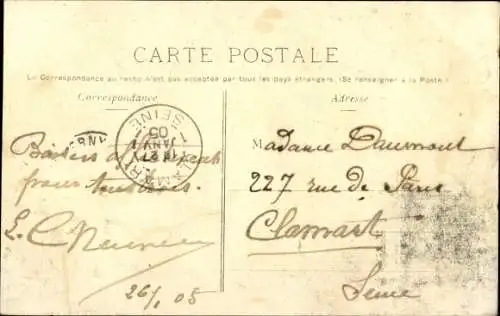 CARTE POSTALE
La Correspondance au recto n'est pas acceptée par tous les pays étrangers. (Se renseigner à la Poste.)
Correspondance
Adresse
CLAMART
JANV
05
SEINE
Madame Daumont
227 rue de Paris
Clamart
Seine
Baisers
pour tous
26/1 05